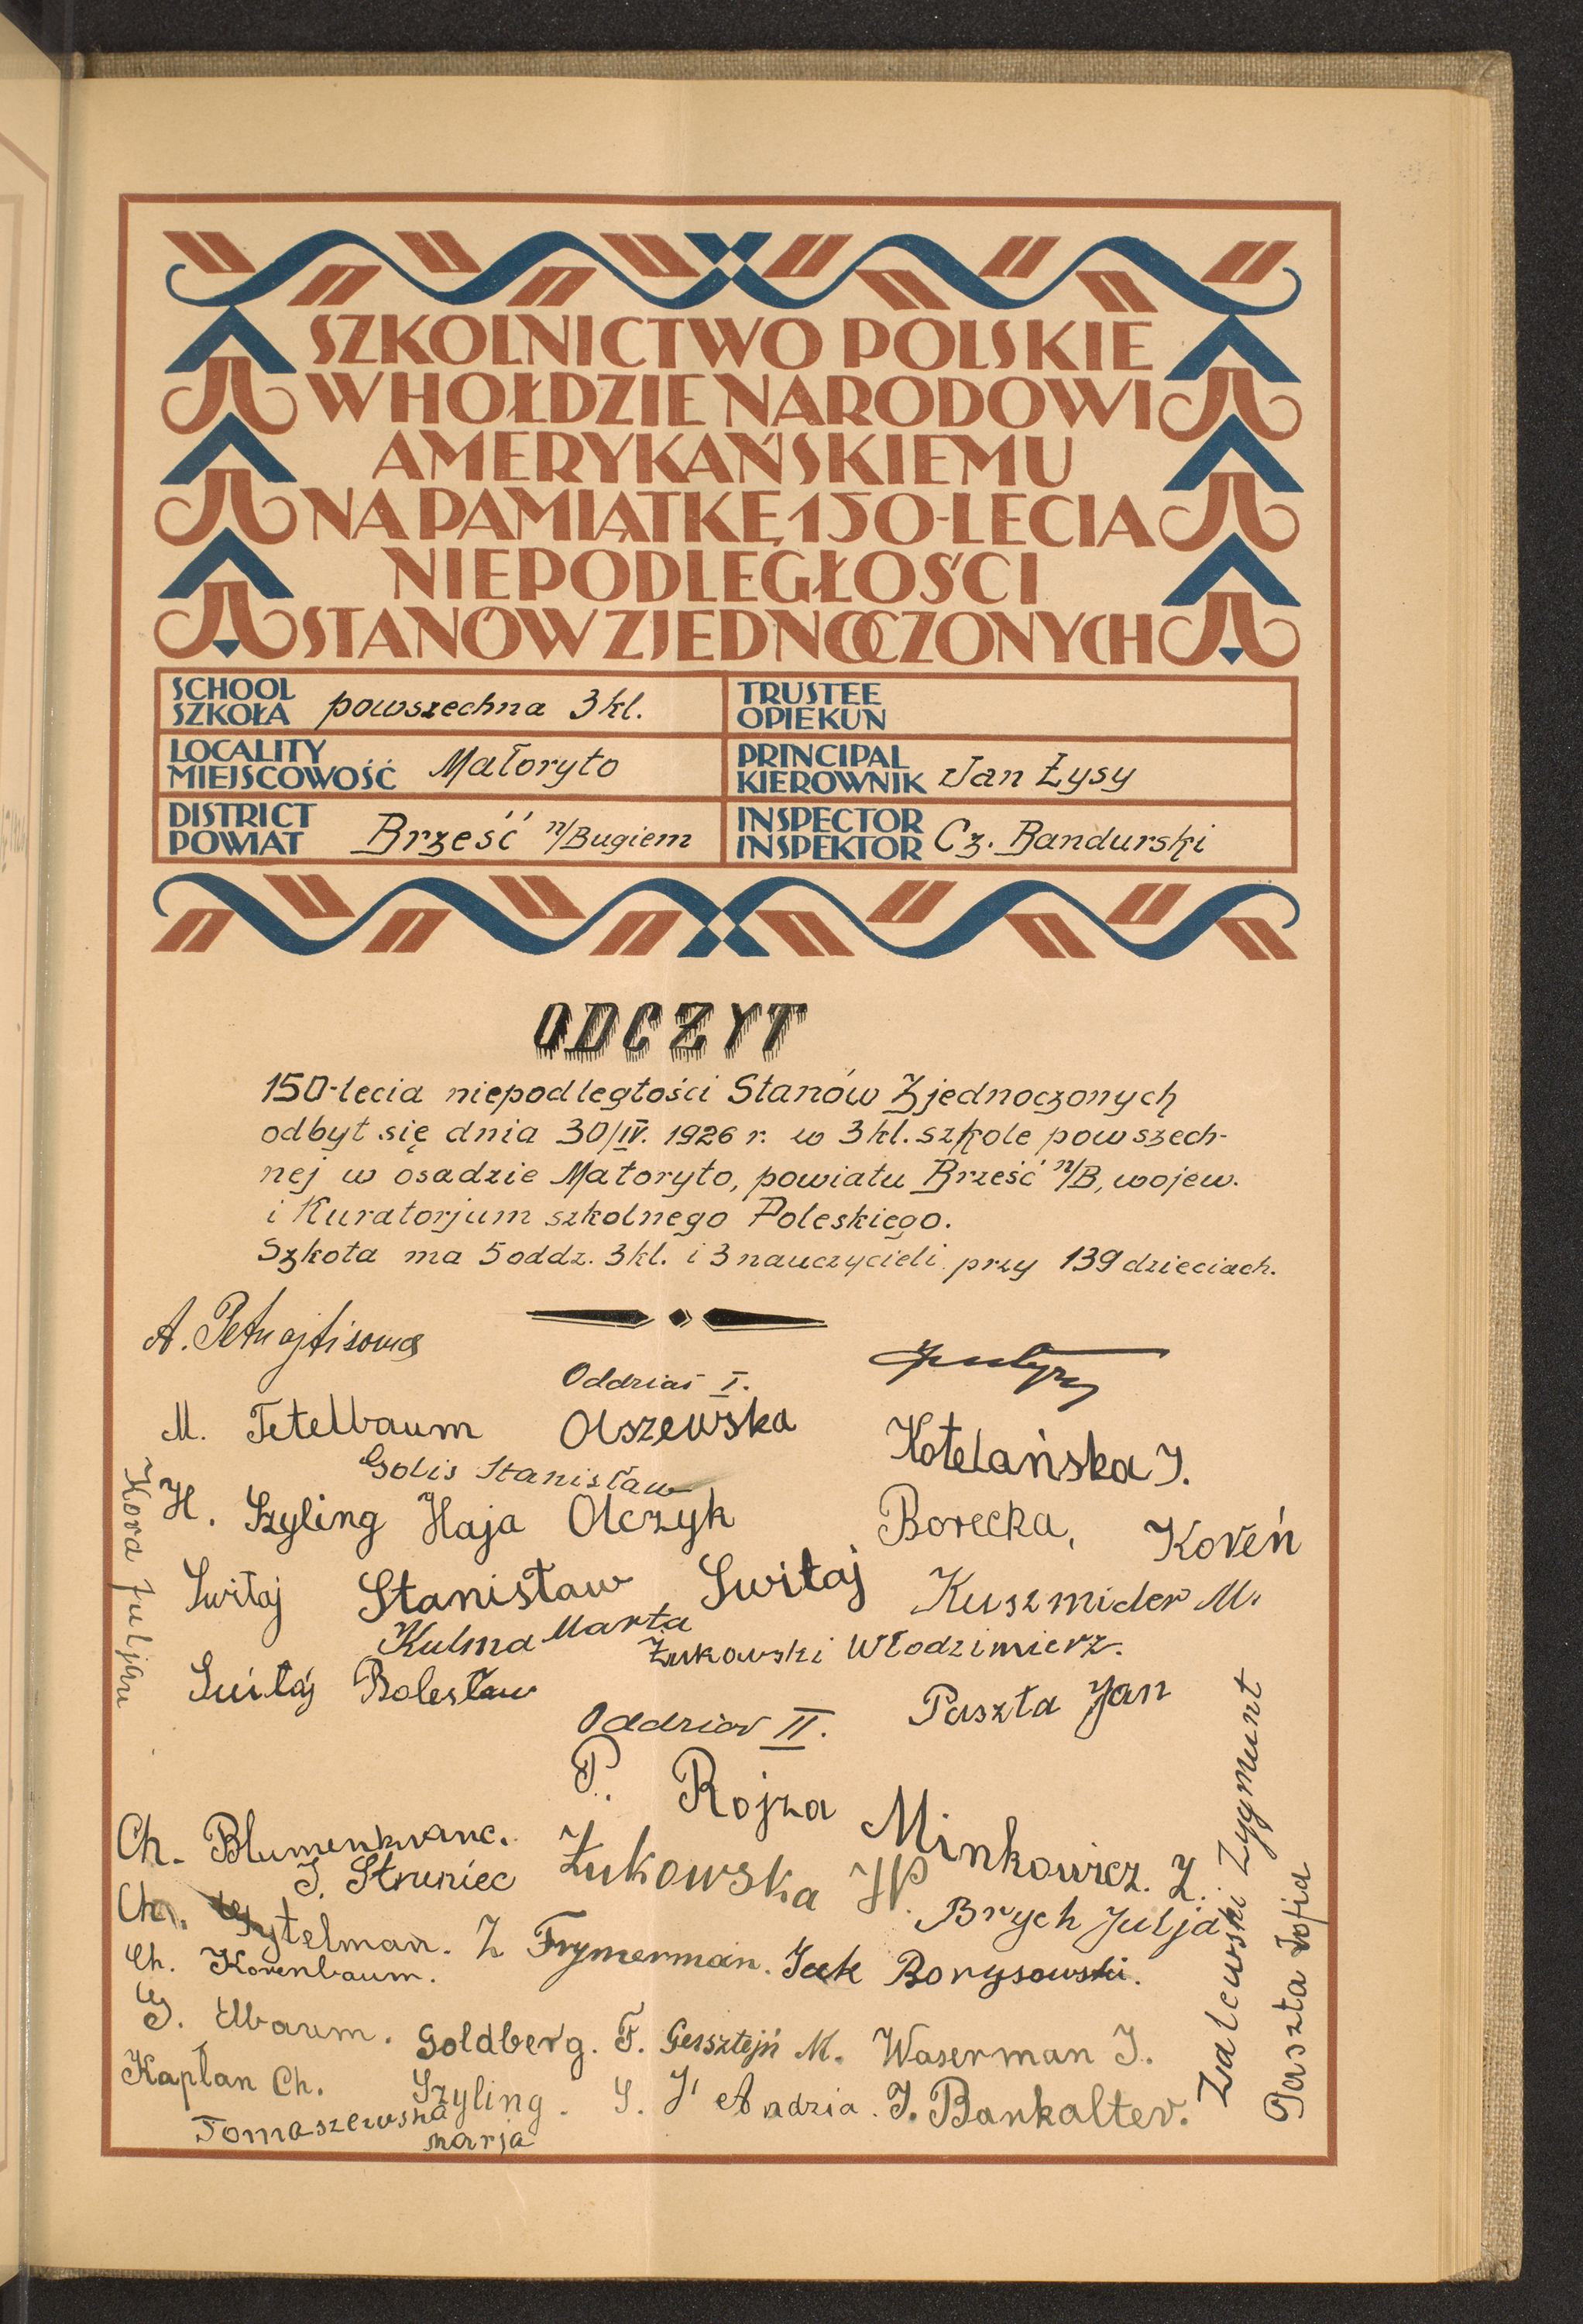 SZKOLNICTWO POLSKIE
W HOŁDZIE NARODOWI
AMERYKAŃSKIEMU
NA PAMIĄTKĘ 150-LECIA
NIEPODLEGŁOŚCI
STANÓW ZJEDNOCZONYCH
SCHOOL
SZKOŁA powszechna 3 kl.
TRUSTEE
OPIEKUN
LOCALITY
MIEJSCOWOŚĆ Małoryto
PRINCIPAL
KIEROWNIK Jan Łysy
DISTRICT
POWIAT Brześć n/Bugiem
INSPECTOR
INSPEKTOR Cz. Bandurski
ODCZYT
150-lecia niepodległości Stanów Zjednoczonych
odbył się dnia 30/IV. 1926 r. w 3 kl. szkole powszech-
nej w osadzie Małoryto, powiatu Brześć n/B, wojew.
i Kuratorjum szkolnego Poleskiego.
Szkoła ma 5 oddz. 3 kl. i 3 nauczycieli przy 139 dzieciach.
A.
Oddział I.
M. Tetelbaum Olszewska Kotelańska J.
Golis Stanisław
H. Szyling Haja Olczyk Borecka, Koreń
Świtaj Stanisław Świtaj Kuszmider M.
Kulma Marta Żukowski Włodzimierz.
Świtaj Bolesław Paszta Jan
Kora Juljan
Oddział II.
P. Rojza Minkowicz. Z.
Ch. Blumenkranc.
J. Struniec Żukowska W. Brych Julja
Ch. Sytelman. Z Frymerman. Icek Borysowski.
Ch. Korenbaum.
G. Elbaum. Goldberg. F. Gersztejn M. Waserman J.
Kapłan Ch. Szyling. S. Andzia. J. Bankalter.
Tomaszewska
marja
Zalewski Zygmunt
Paszta Zofia